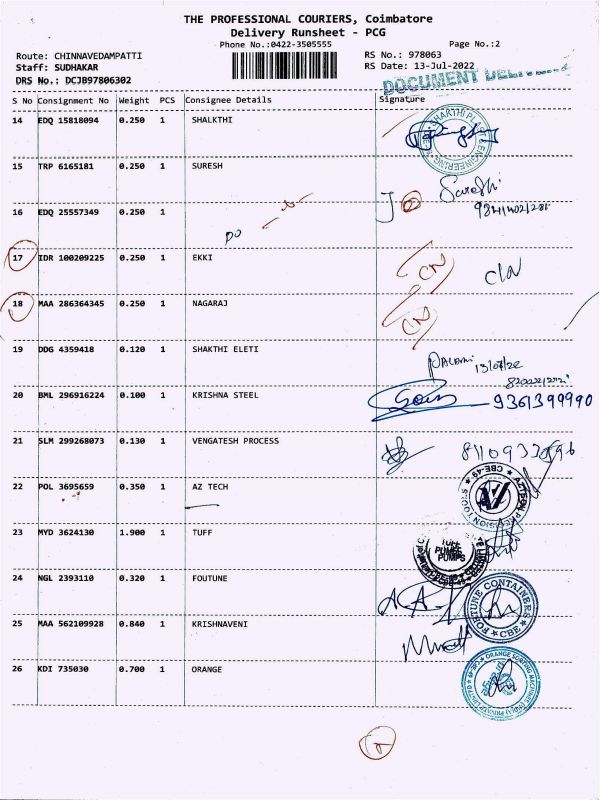 THE PROFESSIONAL COURIERS, Coimbatore
Delivery Runsheet - PCG
Phone No.:0422-3505555 Page No.:2
Route: CHINNAVEDAMPATTI RS No.: 978063
Staff: SUDHAKAR RS Date: 13-Jul-2022
DRS No.: DCJB97806302
DOCUMENT
S No Consignment No Weight PCS Consignee Details Signature
14 EDQ 15818094 0.250 1 SHALKTHI
15 TRP 6165181 0.250 1 SURESH
16 EDQ 25557349 0.250 1
17 IDR 100209225 0.250 1 EKKI
CN
18 MAA 286364345 0.250 1 NAGARAJ
CN
19 DDG 4359418 0.120 1 SHAKTHI ELETI
13/07/22
20 BML 296916224 0.100 1 KRISHNA STEEL
9361399990
21 SLM 299268073 0.130 1 VENGATESH PROCESS
22 POL 3695659 0.350 1 AZ TECH
23 MYD 3624130 1.900 1 TUFF
TUFF
PUMPS
24 NGL 2393110 0.320 1 FOUTUNE
FORTUNE CONTAINERS
CBE
25 MAA 562109928 0.840 1 KRISHNAVENI
26 KDI 735030 0.700 1 ORANGE